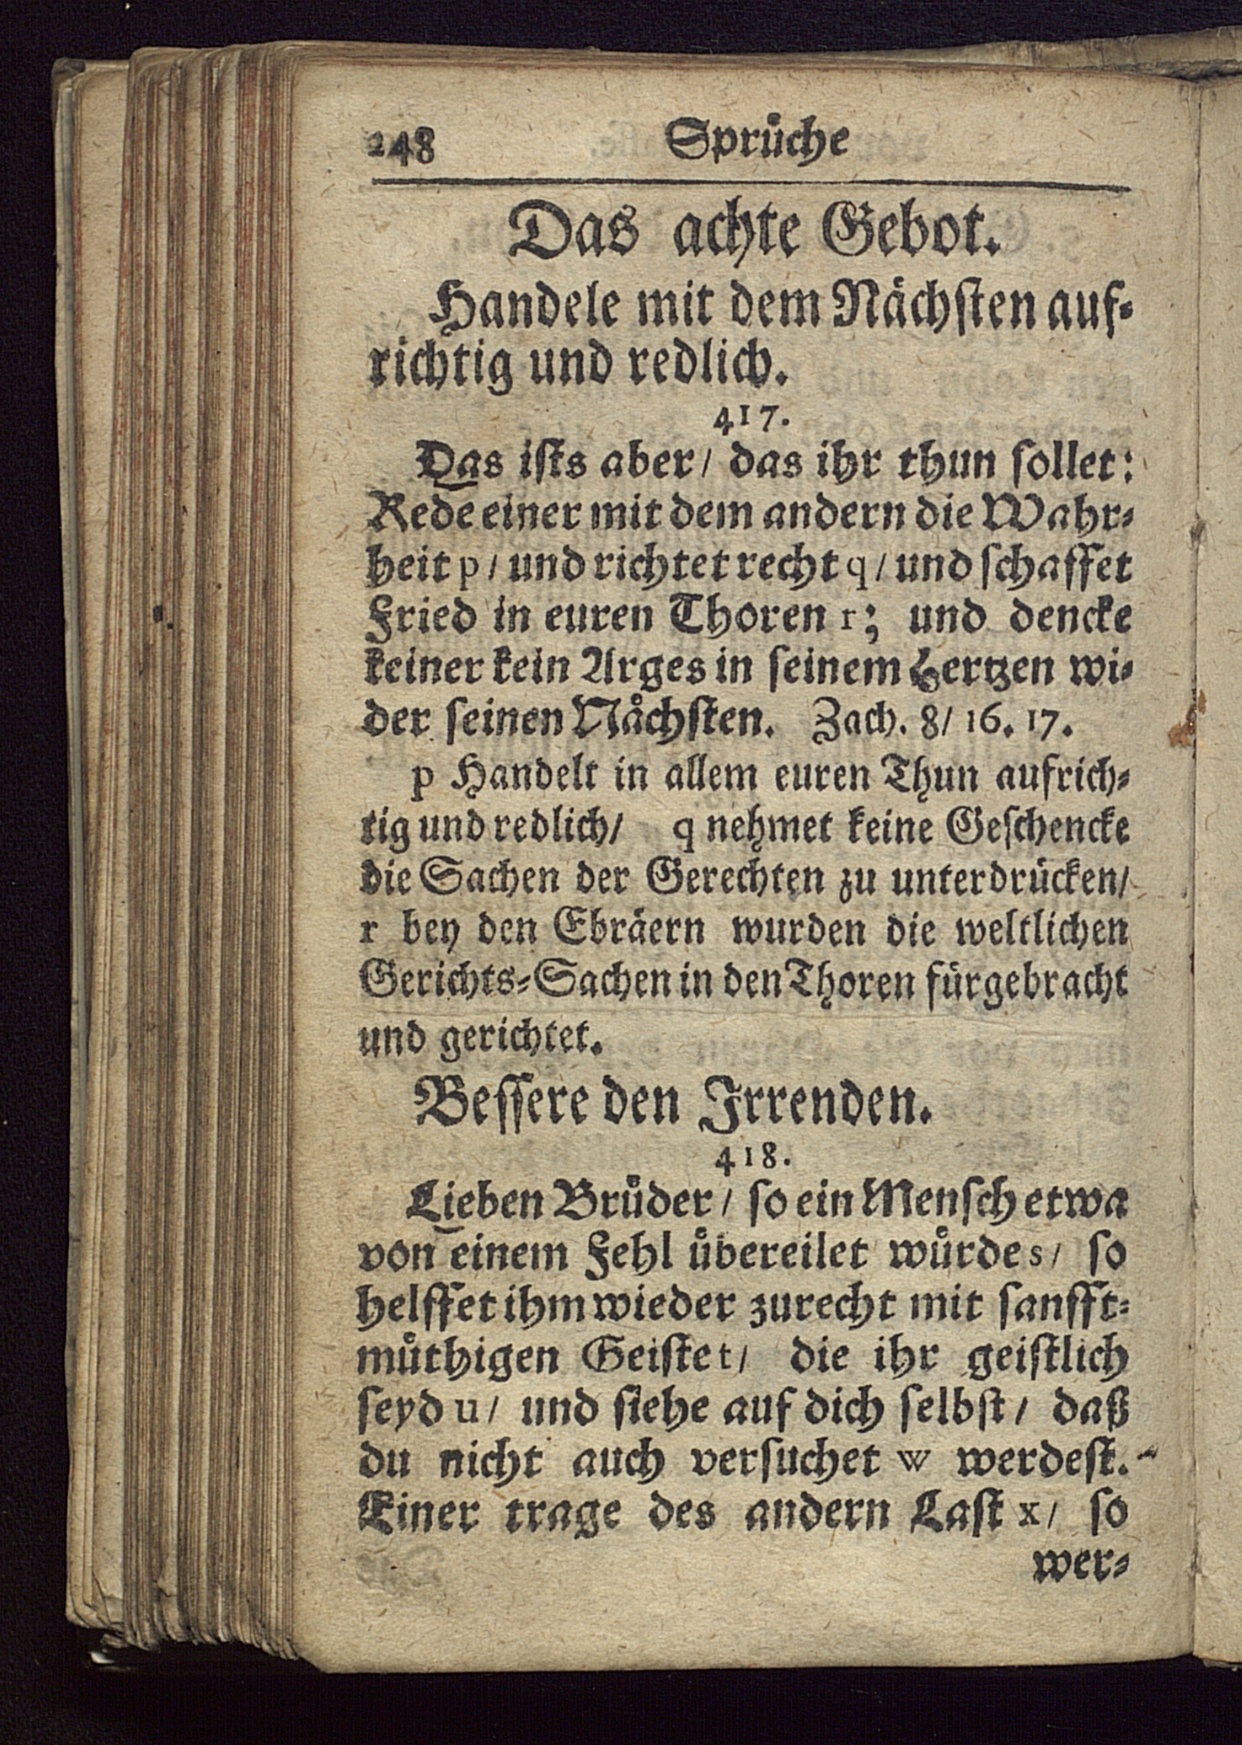 248 Sprüche
Das achte Gebot.
Handele mit dem Nächſten auf⸗
richtig und redlich.
417.
Das iſts aber/ das ihr thun ſollet:
Rede einer mit dem andern die Wahr⸗
heit p/ und richtet recht q/ und ſchaffet
Fried in euren Thoren r; und dencke
keiner kein Arges in ſeinem Hertzen wi⸗
der ſeinen Nächſten. Zach. 8/ 16. 17.
p Handelt in allem euren Thun aufrich⸗
tig und redlich/ q nehmet keine Geſchencke
die Sachen der Gerechten zu unterdrücken/
r bey den Ebräern wurden die weltlichen
Gerichts⸗Sachen in den Thoren fürgebracht
und gerichtet.
Beſſere den Irrenden.
418.
Lieben Brüder/ ſo ein Menſch etwa
von einem Fehl übereilet würde s/ ſo
helffet ihm wieder zurecht mit ſanfft⸗
müthigen Geiſte t/ die ihr geiſtlich
ſeyd u/ und ſiehe auf dich ſelbſt/ daß
du nicht auch verſuchet w werdeſt.
Einer trage des andern Laſt x/ ſo
wer⸗